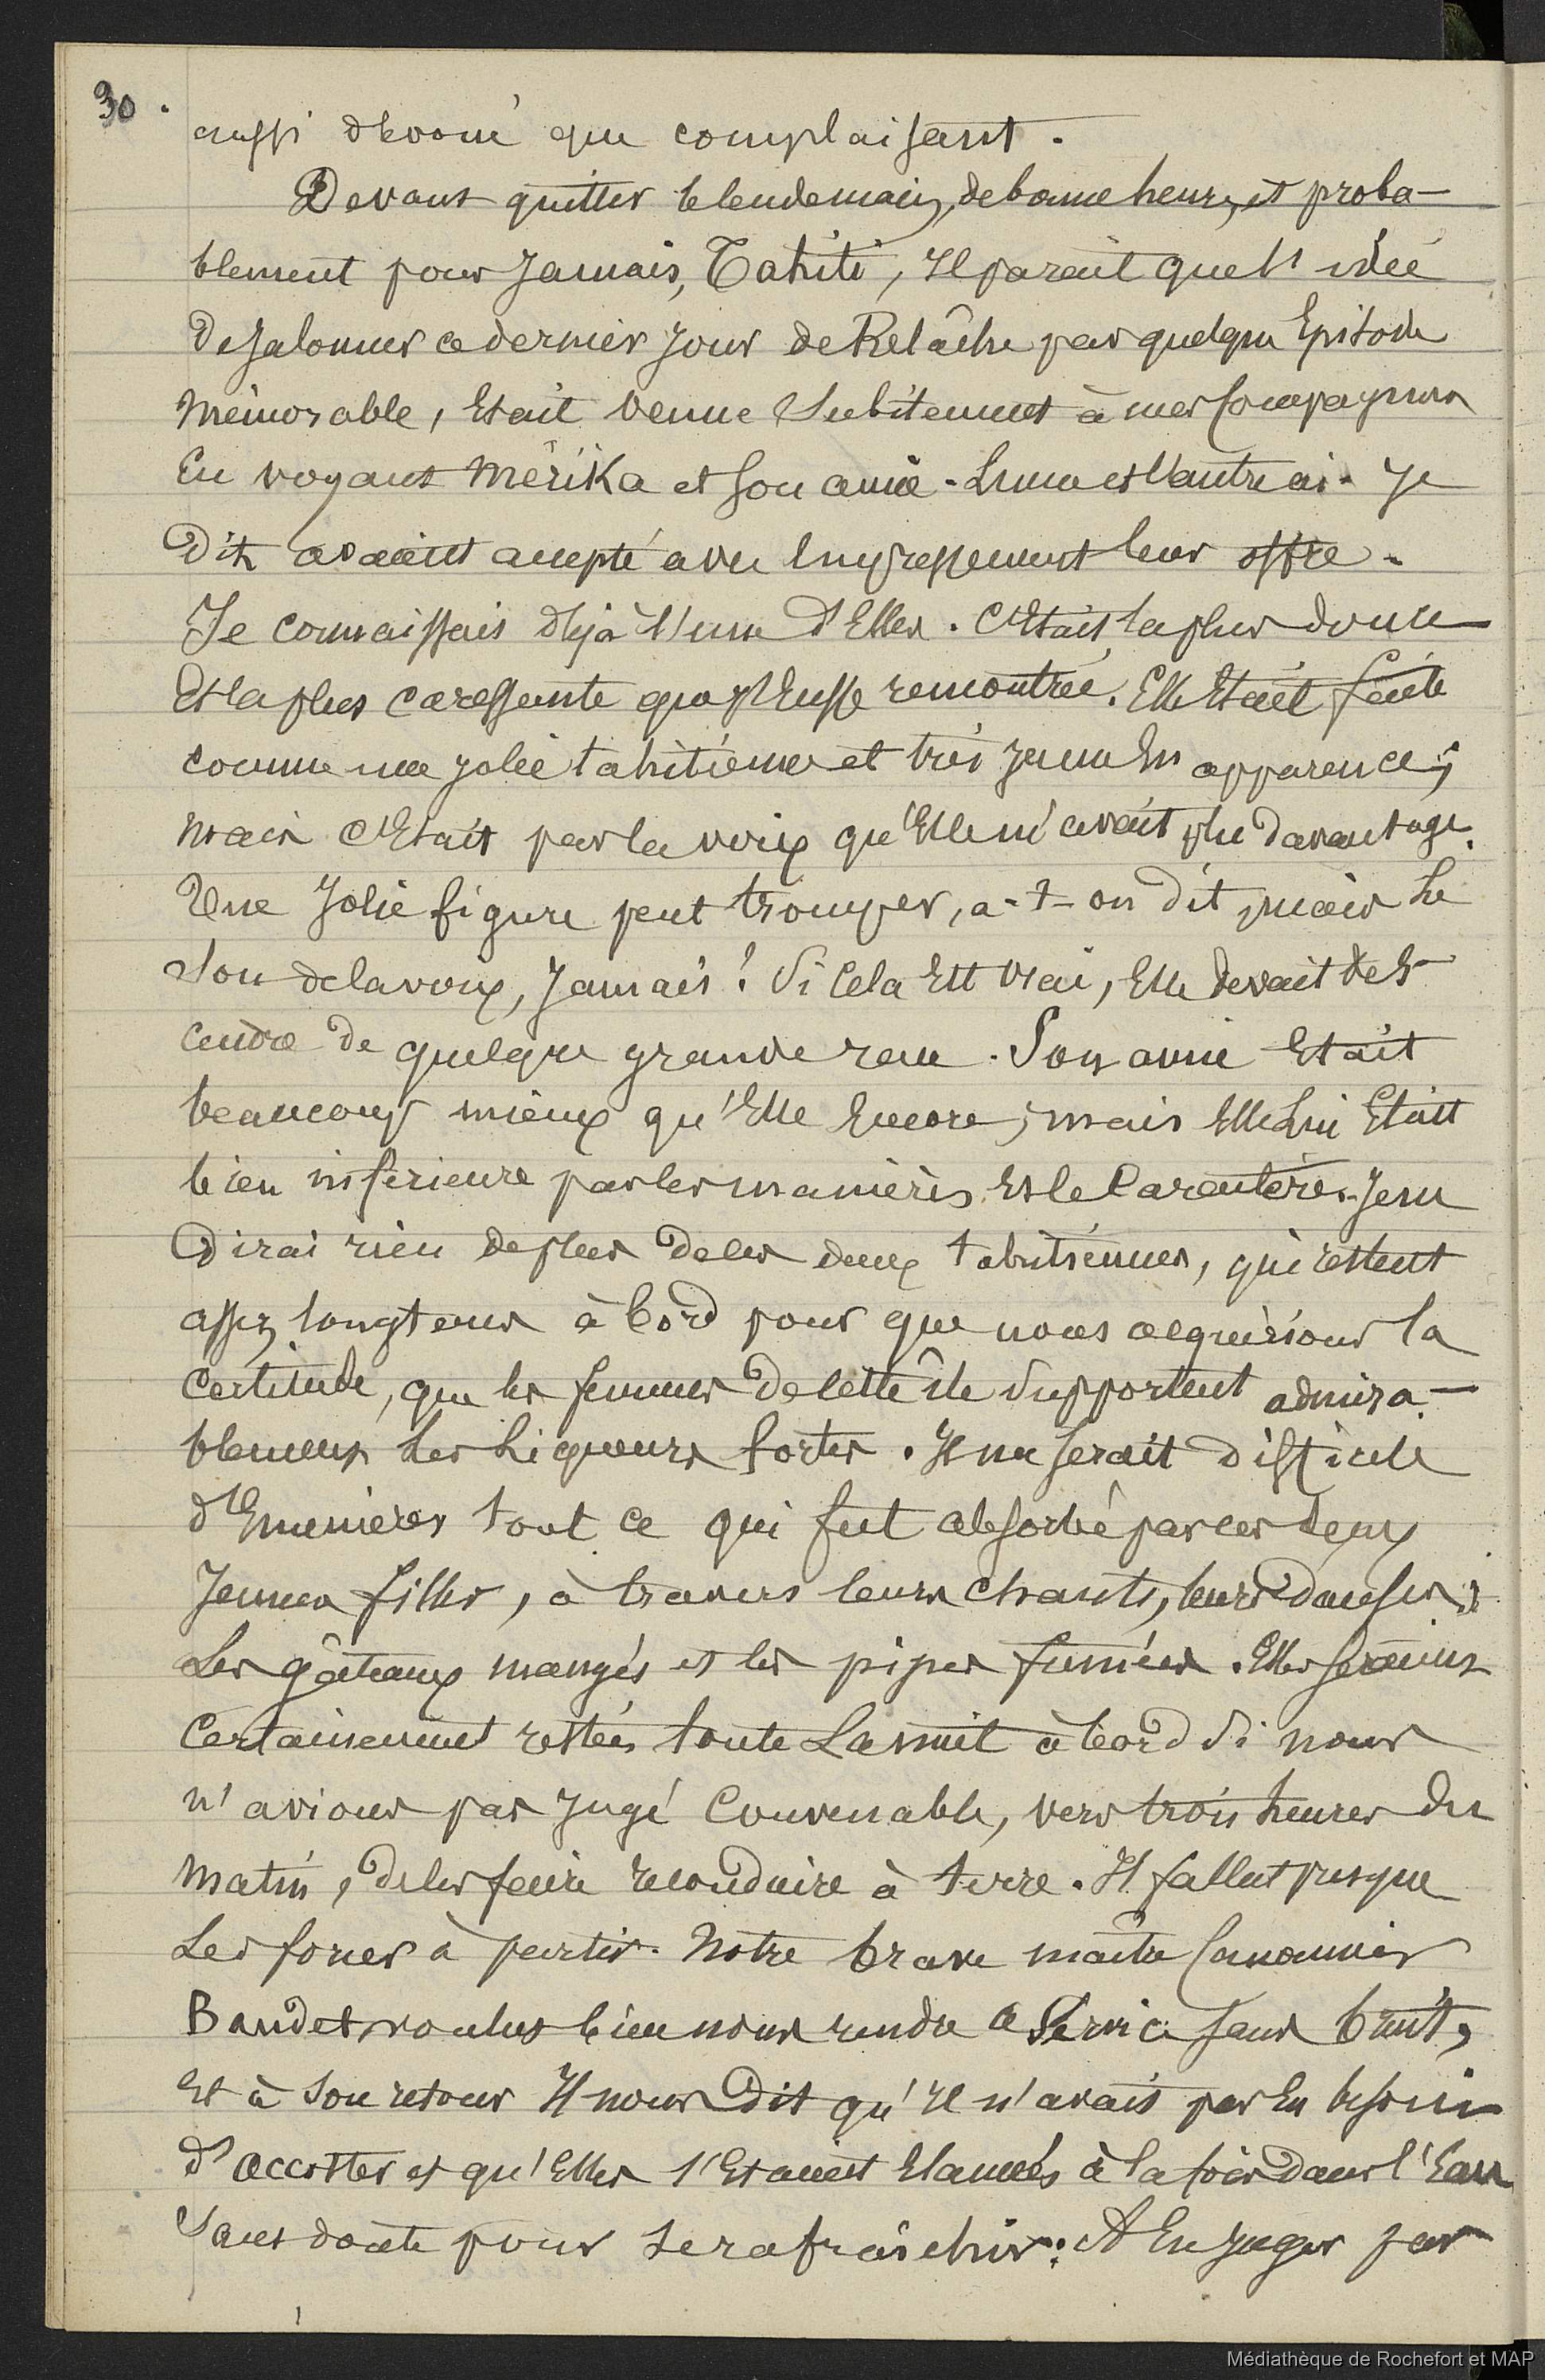 30.
aussi dévoué que complaisant.
Devant quitter le lendemain, de bonne heure, et proba-
blement pour jamais, Tahiti, Il parait que l'idée
De jalonner ce dernier jour de Relâche par quelque Episode
Mémorable, Etait venue Subitement à mes Compagnons
En voyant Mérika et Son amie. L'une et l'autre ai-je
Dit, avaient accepté avec Empressement leur offre.
Je connaissais déjà l'une d'Elles. C'Etait, la plus douce
Et la plus caressante que j'Eusse rencontrée. Elle Etait faite
comme une jolie tahitienne et très jeune En apparence;
Mais c'Etait par la voix qu'Elle m'avait plu davantage.
Une Jolie figure peut tromper, a-t-on dit, mais Le
Son de la voix, Jamais! Si Cela Est Vrai, Elle devait des-
cendre de quelque grande race. Son amie Etait
beaucoup mieux qu'Elle Encore; mais Elle Lui Etait
bien inférieure par les manières Et le Caractère. Je ne
Dirai rien de plus de ces deux tahitiennes, qui restent
assez longtemps à bord pour que nous acquérions la
Certitude, que les femmes de cette île Supportent admira-
blement Les Liqueurs fortes. Il me Serait difficile
d'Enumérer tout ce qui fut absorbé par ces deux
Jeunes filles, à travers leurs chants, leurs Danses;
Les gâteaux mangés et les pipes fumées. Elles Seraient
Certainement restées toute La nuit à bord Si nous
n'avions pas jugé Convenable, vers trois heures du
Matin, de les faire reconduire à terre. Il fallut presque
Les forcer à partir. Notre brave maître Canonnier
Baudet voulut bien nous rendre ce Service Sans bruit,
Et à Son retour Il nous Dit qu'Il n'avait pas Eu besoin
d'accoster et qu'Elles s'Etaient Elancées à la fois dans l'Eau
Sans doute pour Se rafraîchir: A En juger par
Médiathèque de Rochefort et MAP